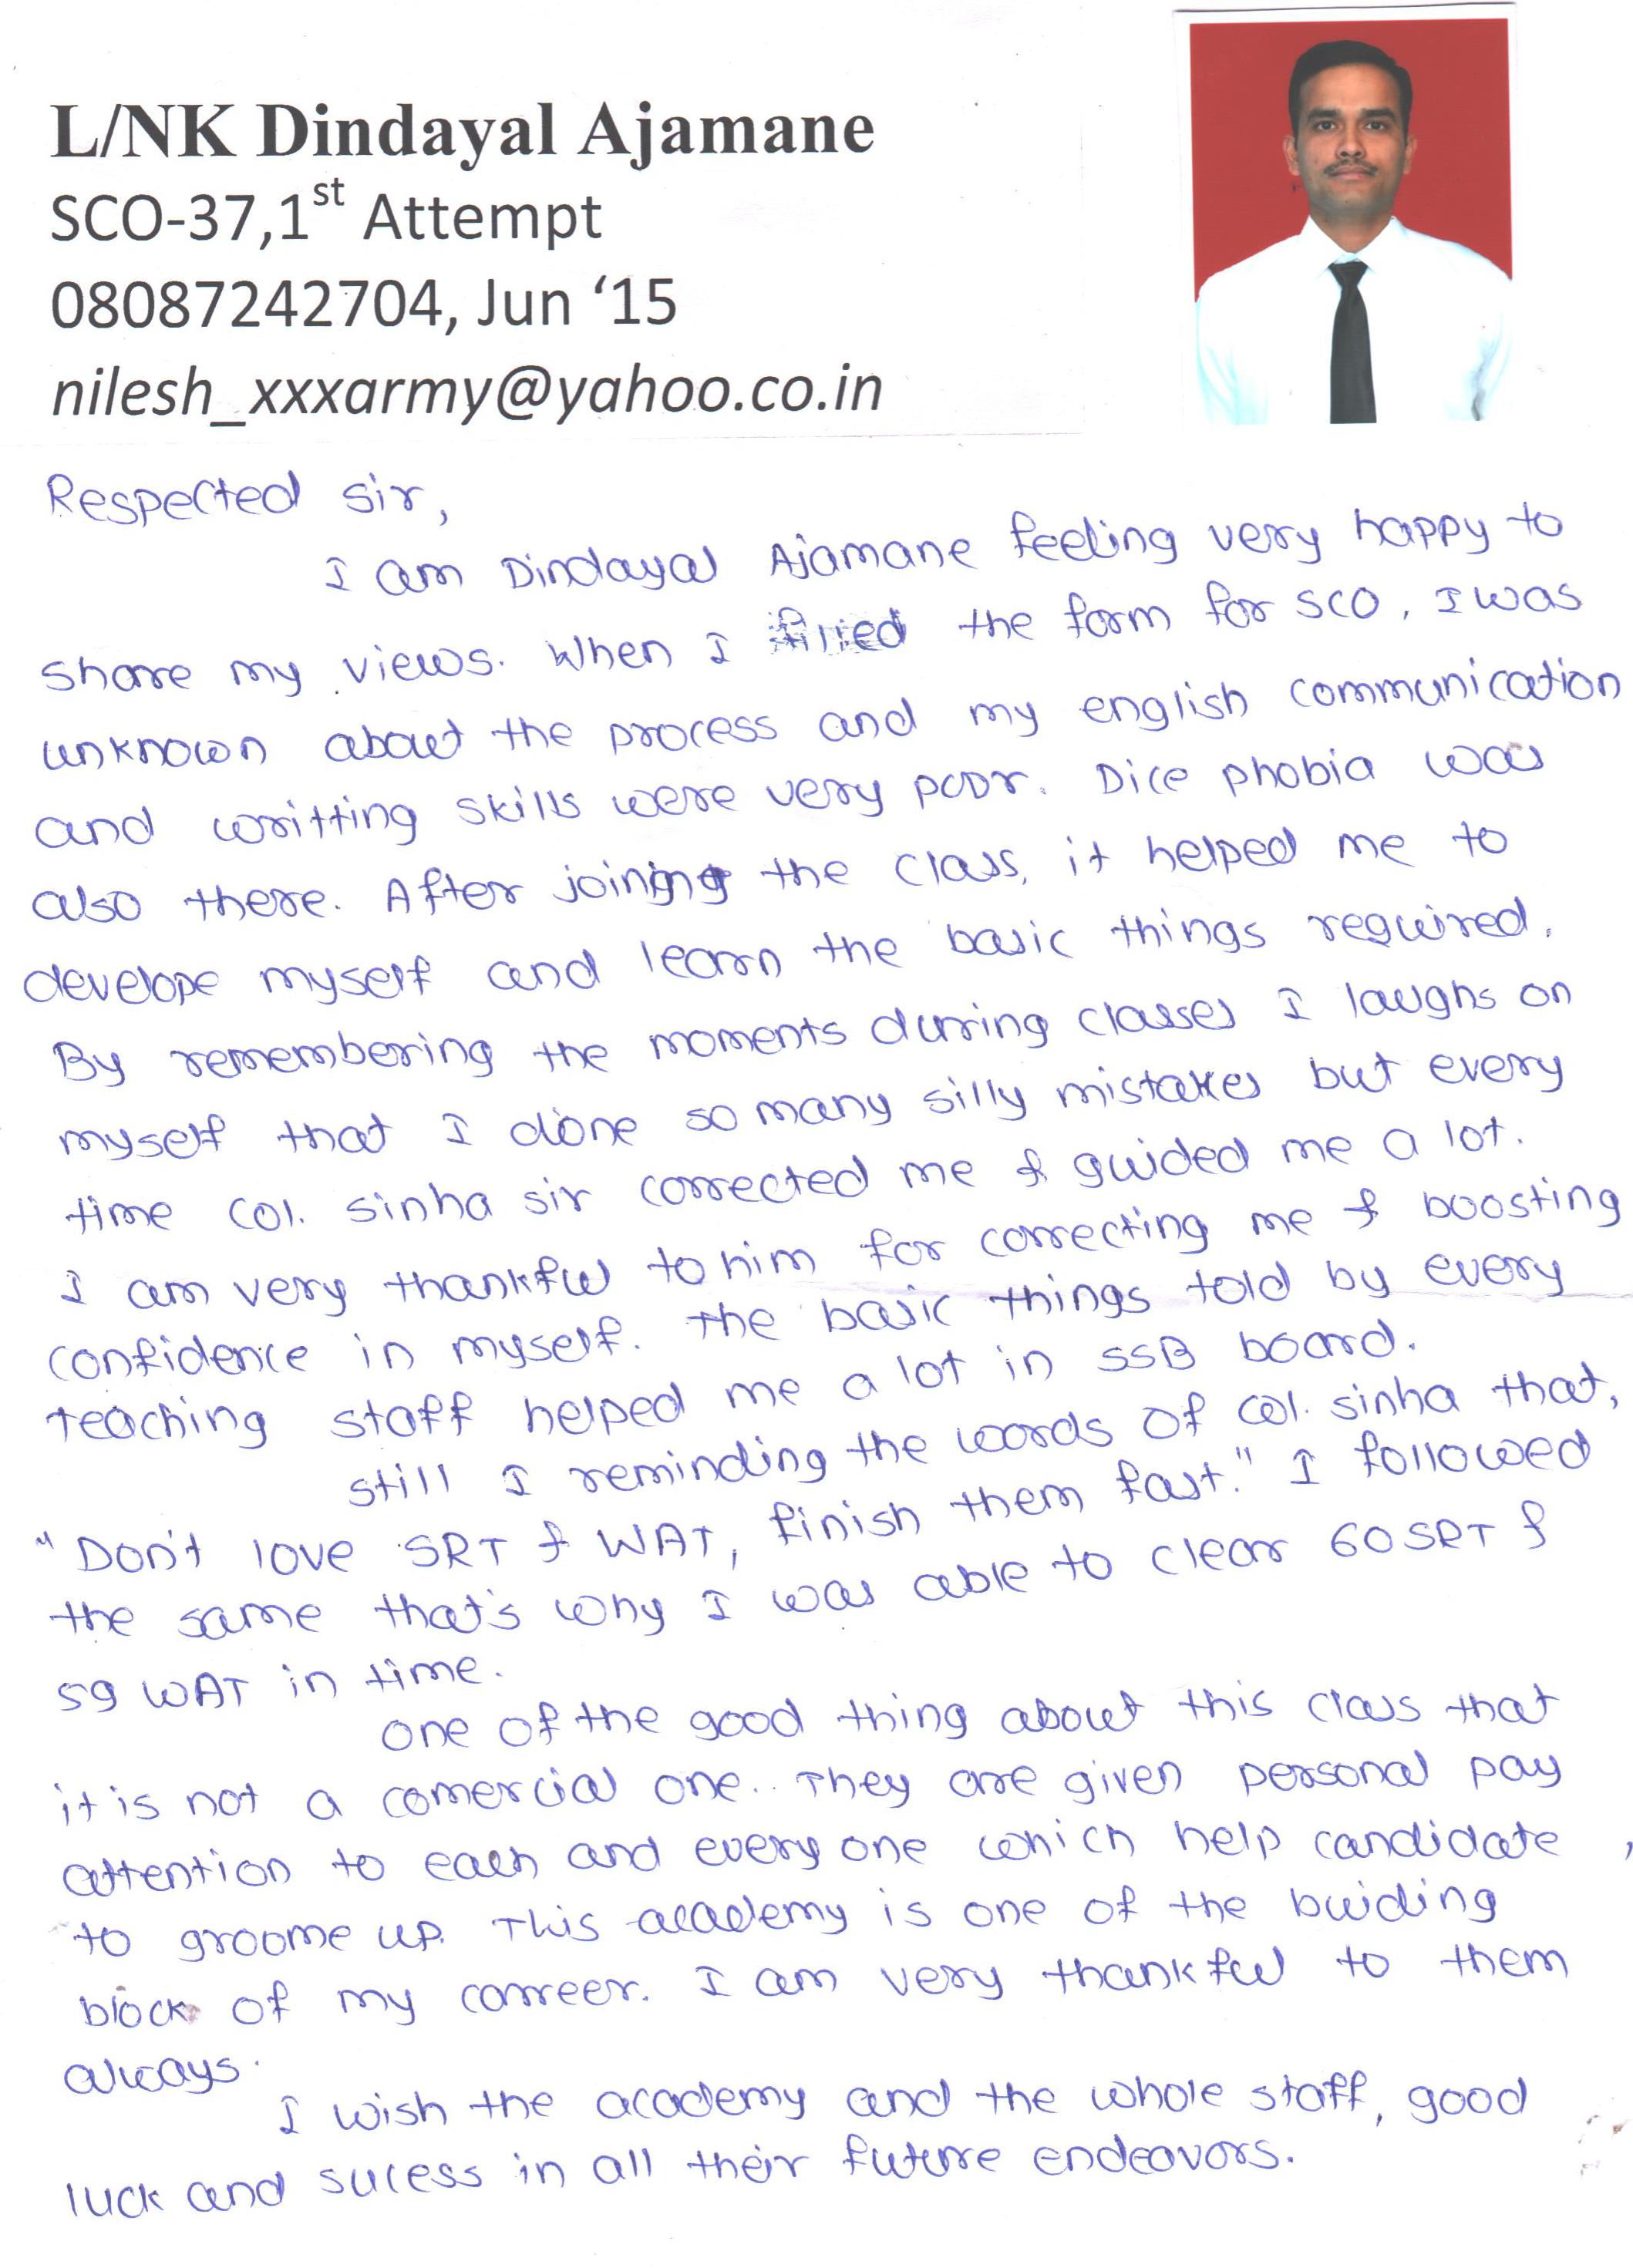 L/NK Dindayal Ajamane
SCO-37,1st Attempt
08087242704, Jun ‘15
nilesh_xxxarmy@yahoo.co.in
Respected sir,
I am Dindayal Ajamane feeling very happy to
share my views. When I filled the form for SCO, I was
unknown about the process and my english communication
and writting skills were very poor. Dice phobia was
also there. After joining the class, it helped me to
develope myself and learn the basic things required.
By remembering the moments during classes I laughs on
myself that I done so many silly mistakes but every
time col. sinha sir corrected me & guided me a lot.
I am very thankful to him for correcting me & boosting
confidence in myself. The basic things told by every
teaching staff helped me a lot in SSB board.
still I reminding the words of col. sinha that,
"Don't love SRT & WAT, finish them fast." I followed
the same that's why I was able to clear 60 SRT &
59 WAT in time.
one of the good thing about this class that
it is not a comercial one. They are given personal pay
attention to each and every one which help candidate
to groome up. This academy is one of the buiding
block of my carreer. I am very thankful to them
always.
I wish the academy and the whole staff, good
luck and sucess in all their future endeavors.